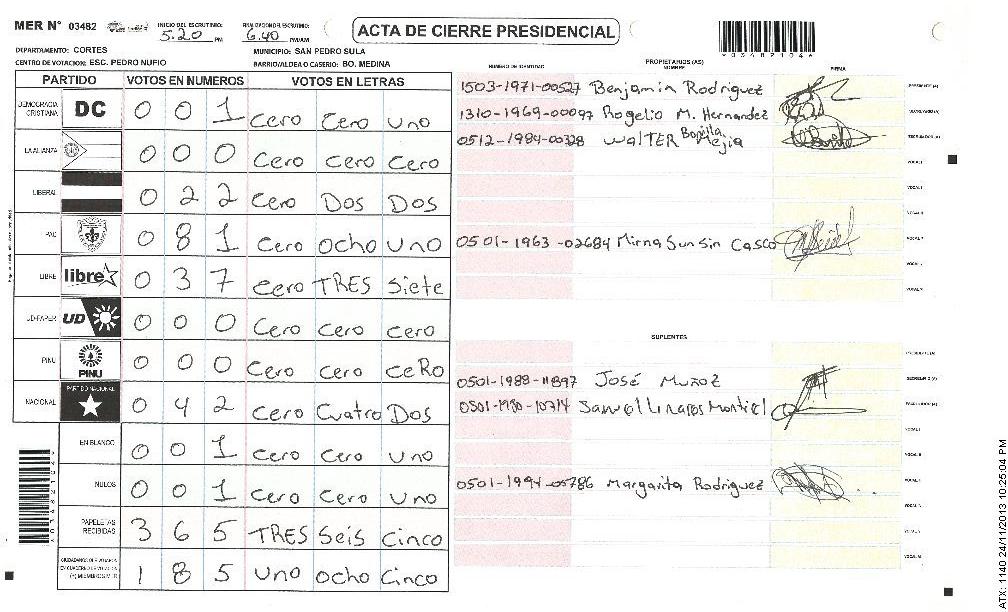 MER N° 03482 INICIO DEL ESCRUTINIO: 5.20 PM FINALIZACION DEL ESCRUTINIO: 6.40 PM/AM ACTA DE CIERRE PRESIDENCIAL
DEPARTAMENTO: CORTES MUNICIPIO: SAN PEDRO SULA
CENTRO DE VOTACION: ESC. PEDRO NUFIO BARRIO/ALDEA O CASERIO: BO. MEDINA
*03482104*
PARTIDO VOTOS EN NUMEROS VOTOS EN LETRAS
DEMOCRACIA CRISTIANA DC 0 0 1 Cero Cero uno
LA ALIANZA 0 0 0 Cero Cero Cero
LIBERAL 0 2 2 Cero Dos Dos
PAC 0 8 1 Cero ocho uno
LIBRE libre 0 3 7 Cero TRES Siete
UD-FAPER UD 0 0 0 Cero cero cero
PINU PINU 0 0 0 Cero cero ceRo
NACIONAL PARTIDO NACIONAL 0 4 2 Cero Cuatro Dos
EN BLANCO 0 0 1 Cero Cero uno
NULOS 0 0 1 Cero Cero uno
PAPELETAS RECIBIDAS 3 6 5 TRES Seis Cinco
CIUDADANOS QUE VOTARON EN CUADERNO DE VOTACION (+) MIEMBROS MER 1 8 5 uno ocho Cinco
PROPIETARIOS (AS)
NUMERO DE IDENTIDAD NOMBRE FIRMA
1503-1971-00527 Benjamin Rodriguez PRESIDENTE (A)
1310-1969-00097 Rogelio M. Hernandez SECRETARIO (A)
0512-1984-00328 WalTER Bonilla Mejia ESCRUTADOR (A)
VOCAL I
VOCAL II
0501-1963-02684 Mirna Sunsin Casco
SUPLENTES
PRESIDENTE (A)
0501-1988-11897 José Muñoz SECRETARIO (A)
0501-1980-10714 Samuel Linares Montiel ESCRUTADOR (A)
VOCAL I
VOCAL II
0501-1994-05786 Margarita Rodriguez
ATX: 1140 24/11/2013 10:25:04 PM